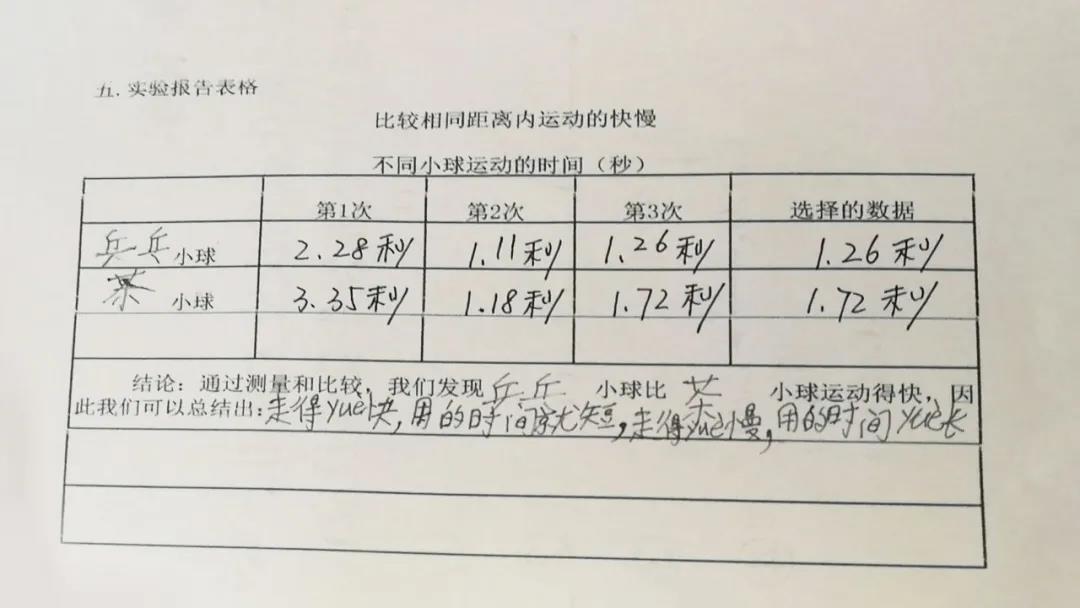 五.实验报告表格
比较相同距离内运动的快慢
不同小球运动的时间（秒）
第1次 第2次 第3次 选择的数据
乒乓小球 2.28秒 1.11秒 1.26秒 1.26秒
小球 3.35秒 1.18秒 1.72秒 1.72秒
结论：通过测量和比较，我们发现乒乓小球比 小球运动得快，因
此我们可以总结出：走得yuè快，用的时间就短，走得yuè慢，用的时间yuè长